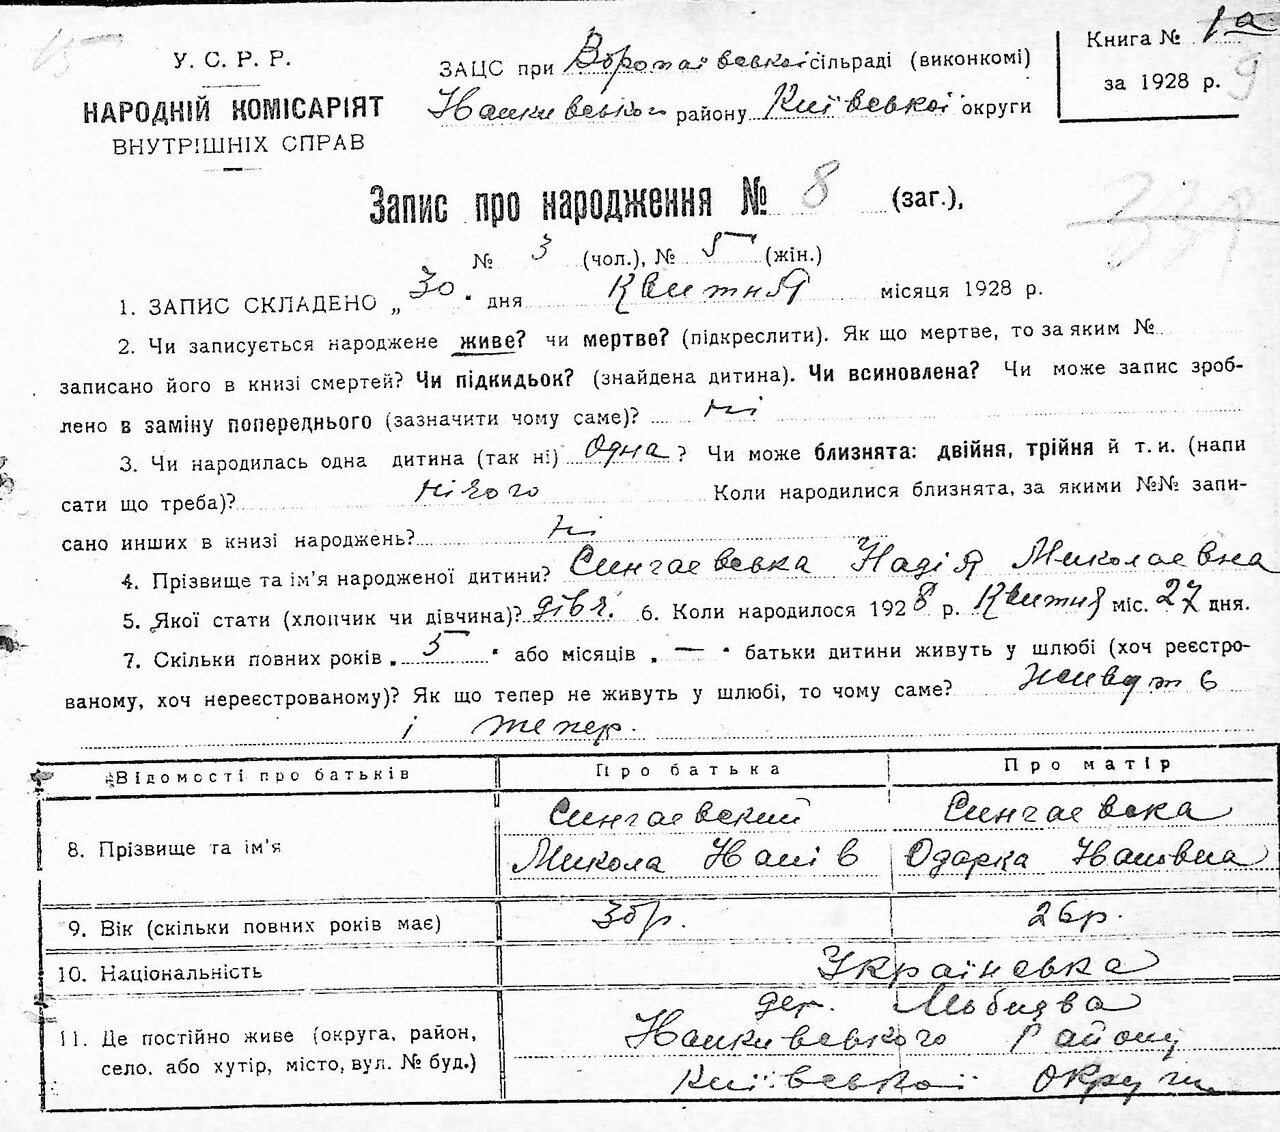 У. С. Р. Р.
НАРОДНІЙ КОМІСАРІЯТ
ВНУТРІШНІХ СПРАВ
ЗАЦС при сільраді (виконкомі)
району Київської округи
Книга № 1а
за 1928 р. 9
Запис про народження № 8 (заг.),
№ 3 (чол.), № 5 (жін.)
1. ЗАПИС СКЛАДЕНО „30" дня Квітня місяця 1928 р.
2. Чи записується народжене живе? чи мертве? (підкреслити). Як що мертве, то за яким №
записано його в книзі смертей? Чи підкидьок? (знайдена дитина). Чи всиновлена? Чи може запис зроб-
лено в заміну попереднього (зазначити чому саме)? Ні
3. Чи народилась одна дитина (так ні) Одна? Чи може близнята: двійня, трійня й т. и. (напи
сати що треба)? нічого Коли народилися близнята, за якими №№ запи-
сано инших в книзі народжень? Ні
4. Прізвище та ім'я народженої дитини? Сингаевська Надія Миколаевна
5. Якої стати (хлопчик чи дівчина)? дівч. 6. Коли народилося 1928 р. Квитня міс. 27 дня.
7. Скільки повних років „5" або місяців „—" батьки дитини живуть у шлюбі (хоч реєстро-
ваному, хоч нереєстрованому)? Як що тепер не живуть у шлюбі, то чому саме? живуть
і тепер.
Відомості про батьків Про батька Про матір
8. Прізвище та ім'я Сингаевский Сингаевска
Микола Іванів Одарка Івановна
9. Вік (скільки повних років має) 26р.
10. Національність Українська
11. Де постійно живе (округа, район,
село, або хутір, місто, вул. № буд.) дер.
Району
Київської Округи